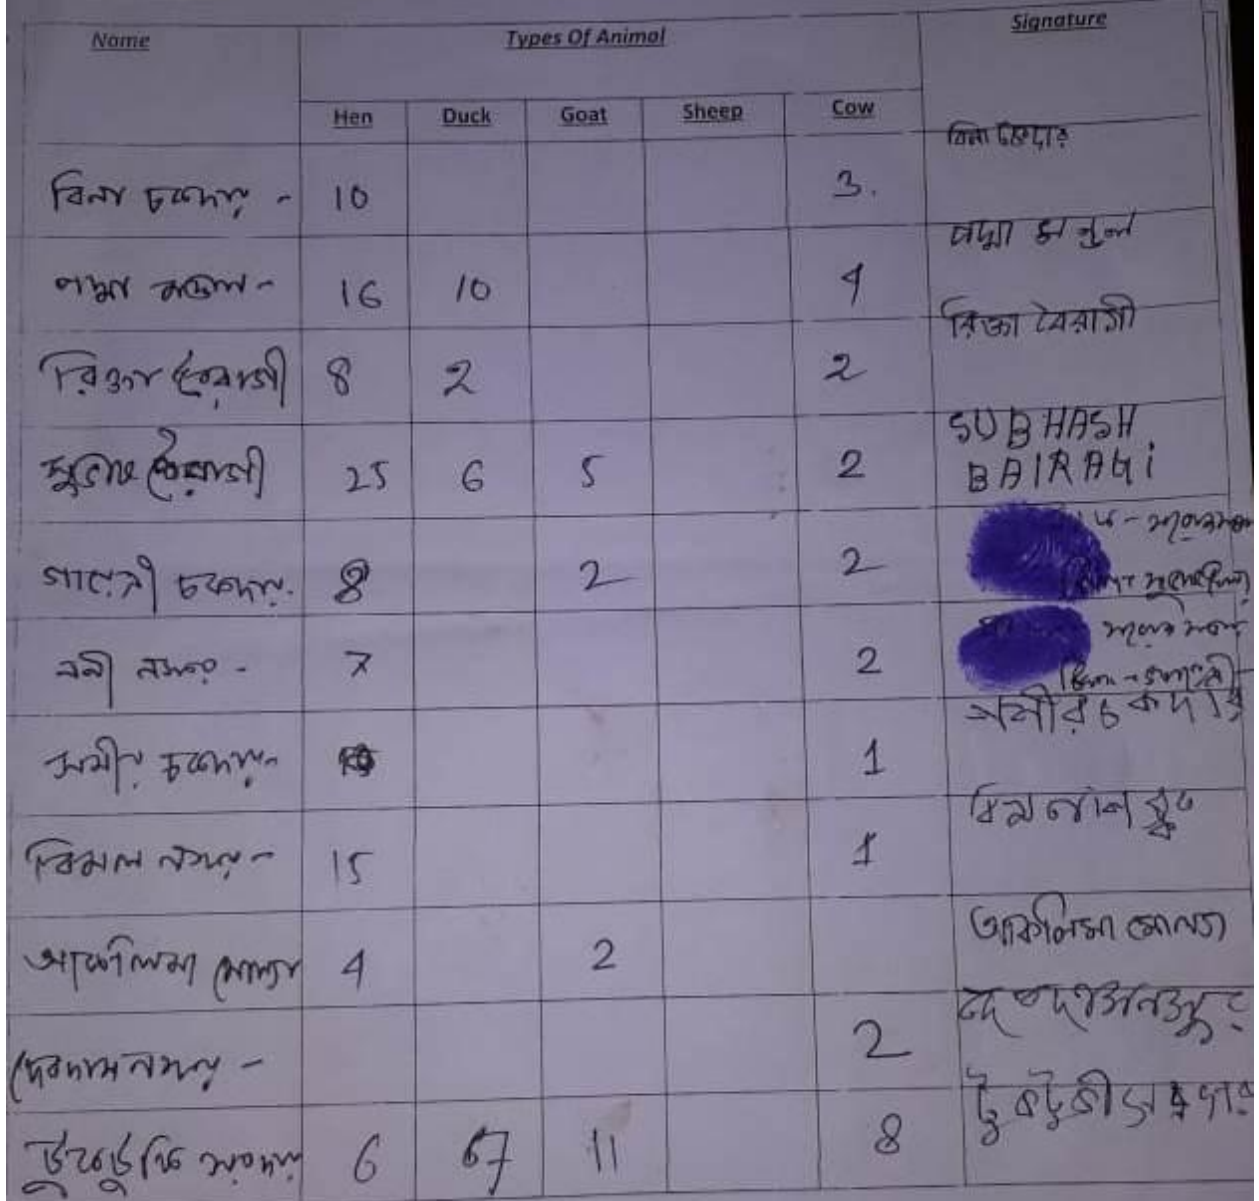 Name Types Of Animal Signature
Hen Duck Goat Sheep Cow
বিনা চকদার - 10 3. বিনা চকদার
পদ্মা মন্ডল - 16 10 4 পদ্মা মন্ডল
রিক্তা বৈরাগী 8 2 2 রিক্তা বৈরাগী
সুভাষ বৈরাগী 25 6 5 2 SUBHASH
BAIRAGI
চকদার. 8 2 2
ননী নস্কর - 7 2
সমীর চকদার - 1 সমীর চকদার
বিমল নস্কর - 15 1
আকলিমা মোল্যা 4 2 আকলিমা মোল্যা
দেবদাস নস্কর - 2
টুকটুকি সরদার 6 11 8 টুকটুকী সরদার